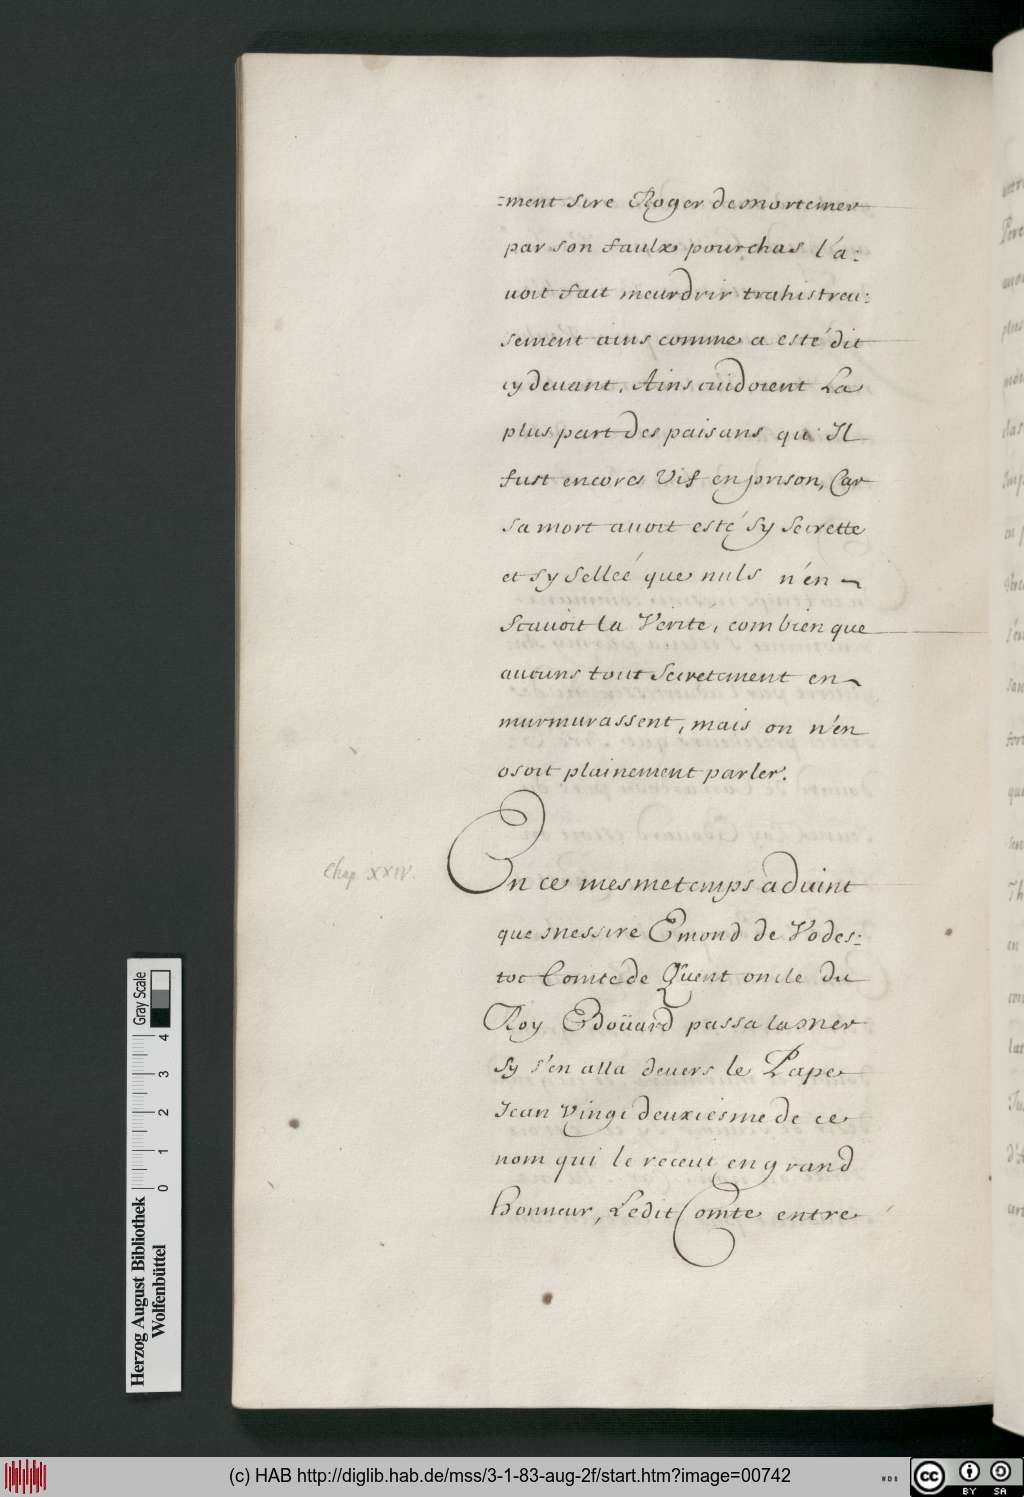 =ment sire Roger de mortemer
par son faulx pourchas l'a:
uoit fait meurdrir trahistreu:
sement ains comme a esté dit
cy deuant, Ains cuidoient La
plus part des paisans qu'Il
fust encores Vif en prison, Car
sa mort auoit esté sy secrette
et sy selleé que nuls n'en
scauoit la Verité, combien que
aucuns tout secretement en
murmurassent, mais on n'en
osoit plainement parler.
Chap XXIV.
En ce mesme temps aduint
que messire Emond de Vodes:
toc Comte de Quent oncle du
Roy Edoüard passa la mer
sy s'en alla deuers le Pape
Jean Vingt deuxiesme de ce
nom qui le receut en grand
honneur, Ledit Comte entre
Herzog August Bibliothek
Wolfenbüttel
0 1 2 3 4
Gray Scale
(c) HAB http://diglib.hab.de/mss/3-1-83-aug-2f/start.htm?image=00742
WDB
cc BY SA